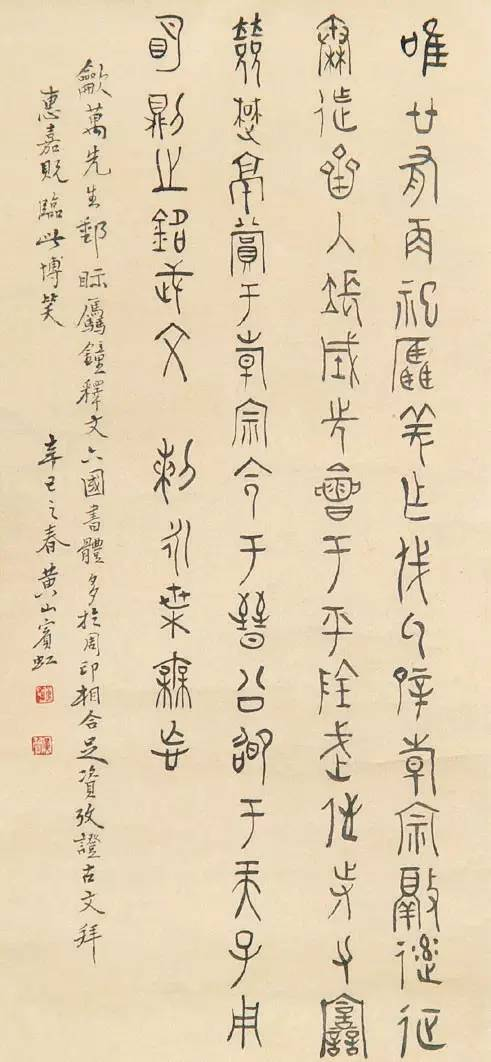 唯廿又再祀驫羌乍戎氒辟倝宗敲達征
秦迮齊入長城先會于平陰武侄寺力
敚楚京賞于倝宗令于晉公卲于天子用
明則之銘武文 剌永枼毋忘
萬先生郵眎驫鐘釋文六國書體多於周印相合足資攷證古文拜
惠嘉貺臨此博笑 辛巳之春黃山賓虹